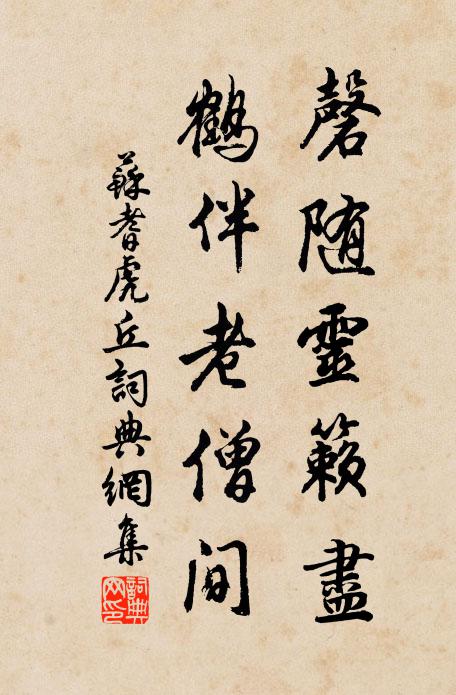 磬随靈籟盡
鶴伴老僧間
蘇耆虎丘詞典網集
詞典网印